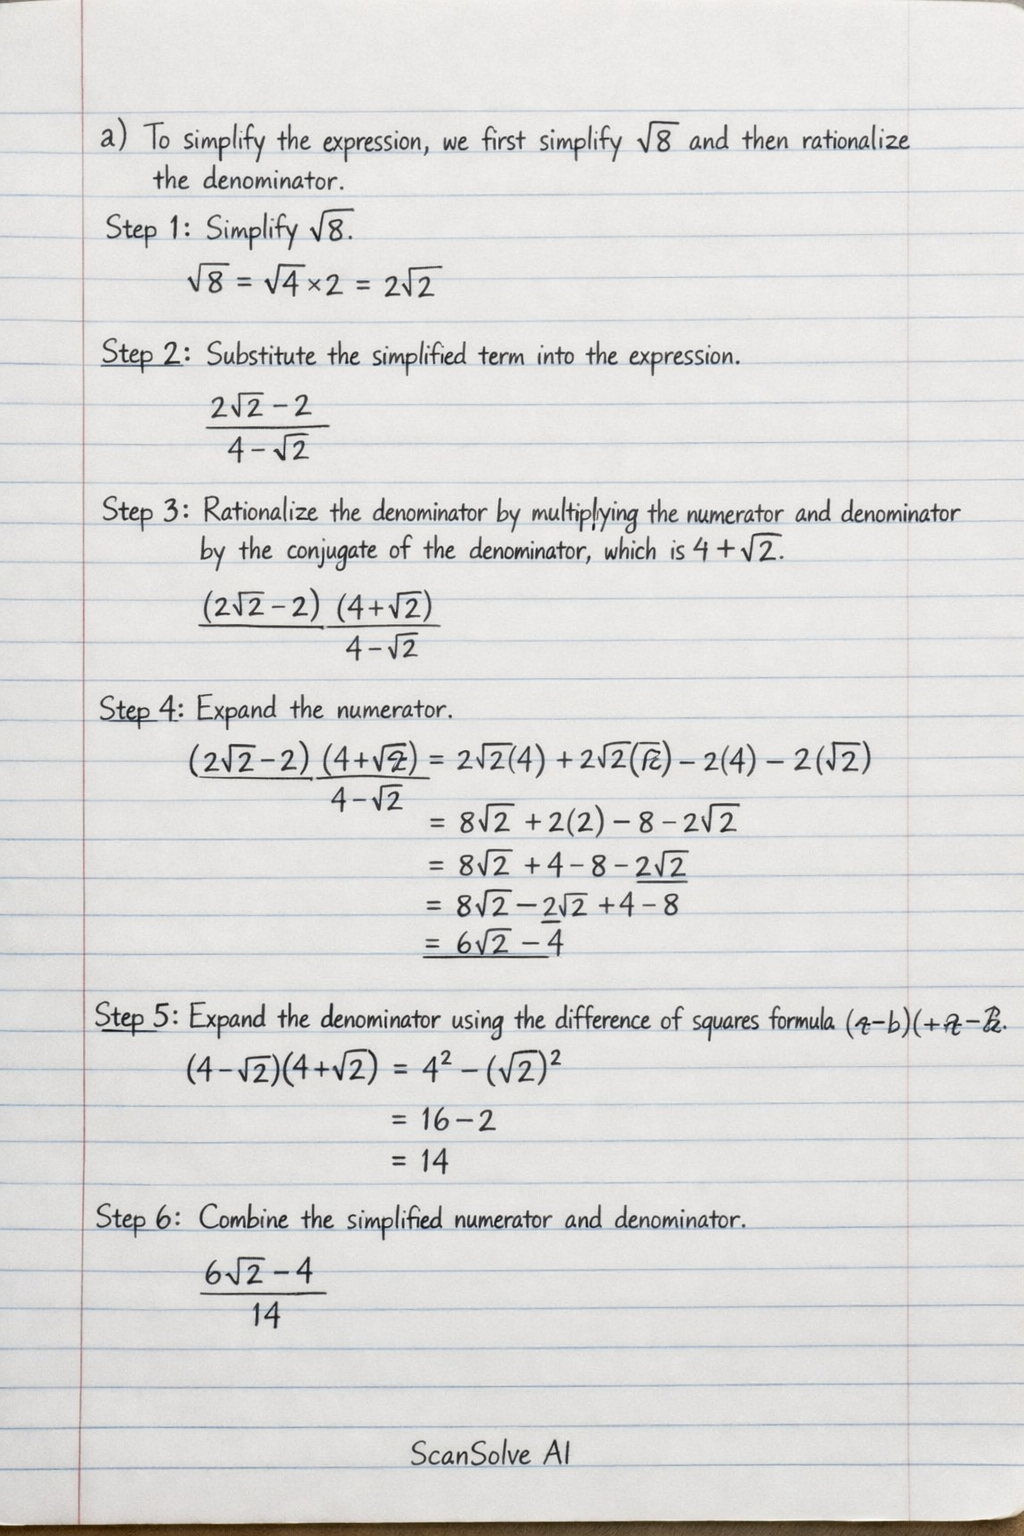 a) To simplify the expression, we first simplify √8 and then rationalize
the denominator.
Step 1: Simplify √8.
√8 = √4 × 2 = 2√2
Step 2: Substitute the simplified term into the expression.
2√2 - 2
4 - √2
Step 3: Rationalize the denominator by multiplying the numerator and denominator
by the conjugate of the denominator, which is 4 + √2.
(2√2 - 2) (4 + √2)
4 - √2
Step 4: Expand the numerator.
(2√2 - 2) (4 + √2) = 2√2(4) + 2√2(√2) - 2(4) - 2(√2)
4 - √2
= 8√2 + 2(2) - 8 - 2√2
= 8√2 + 4 - 8 - 2√2
= 8√2 - 2√2 + 4 - 8
= 6√2 - 4
Step 5: Expand the denominator using the difference of squares formula
(4 - √2)(4 + √2) = 4² - (√2)²
= 16 - 2
= 14
Step 6: Combine the simplified numerator and denominator.
6√2 - 4
14
ScanSolve AI